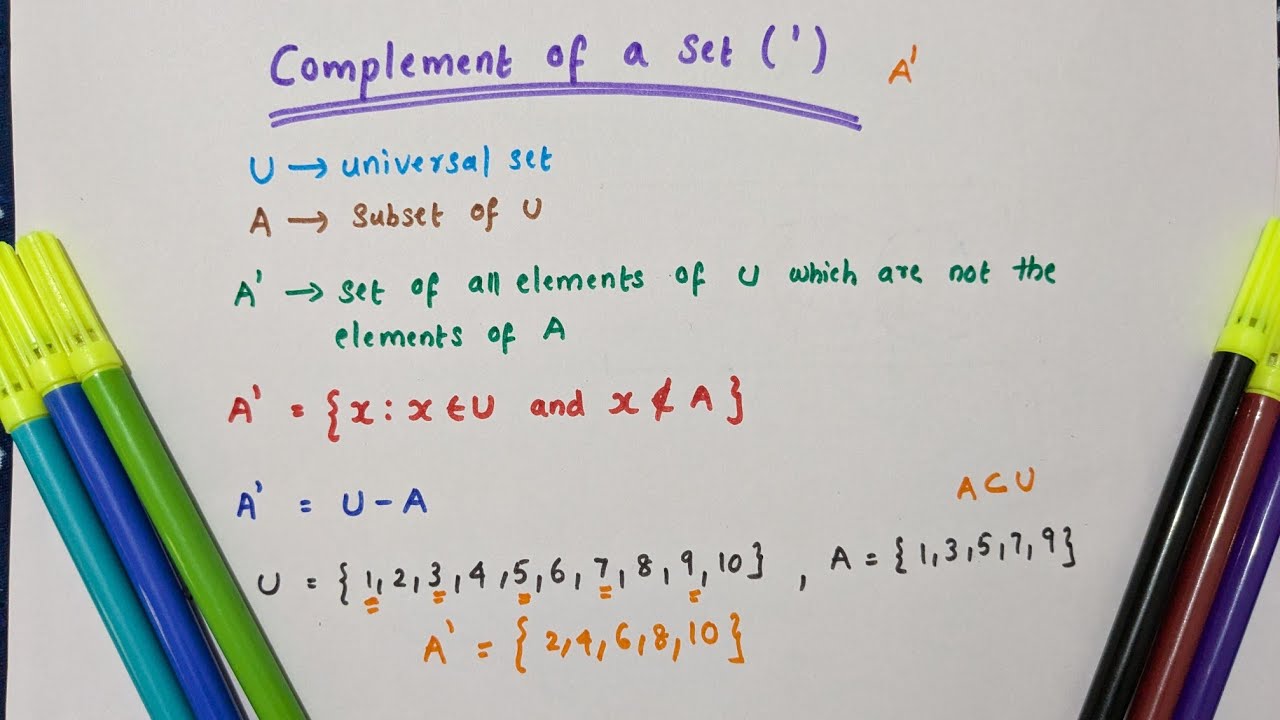 Complement of a set (') A'
U → universal set
A → subset of U
A' → set of all elements of U which are not the
elements of A
A' = {x : x ∈ U and x ∉ A}
A' = U - A
A ⊂ U
U = {1, 2, 3, 4, 5, 6, 7, 8, 9, 10}, A = {1, 3, 5, 7, 9}
A' = {2, 4, 6, 8, 10}